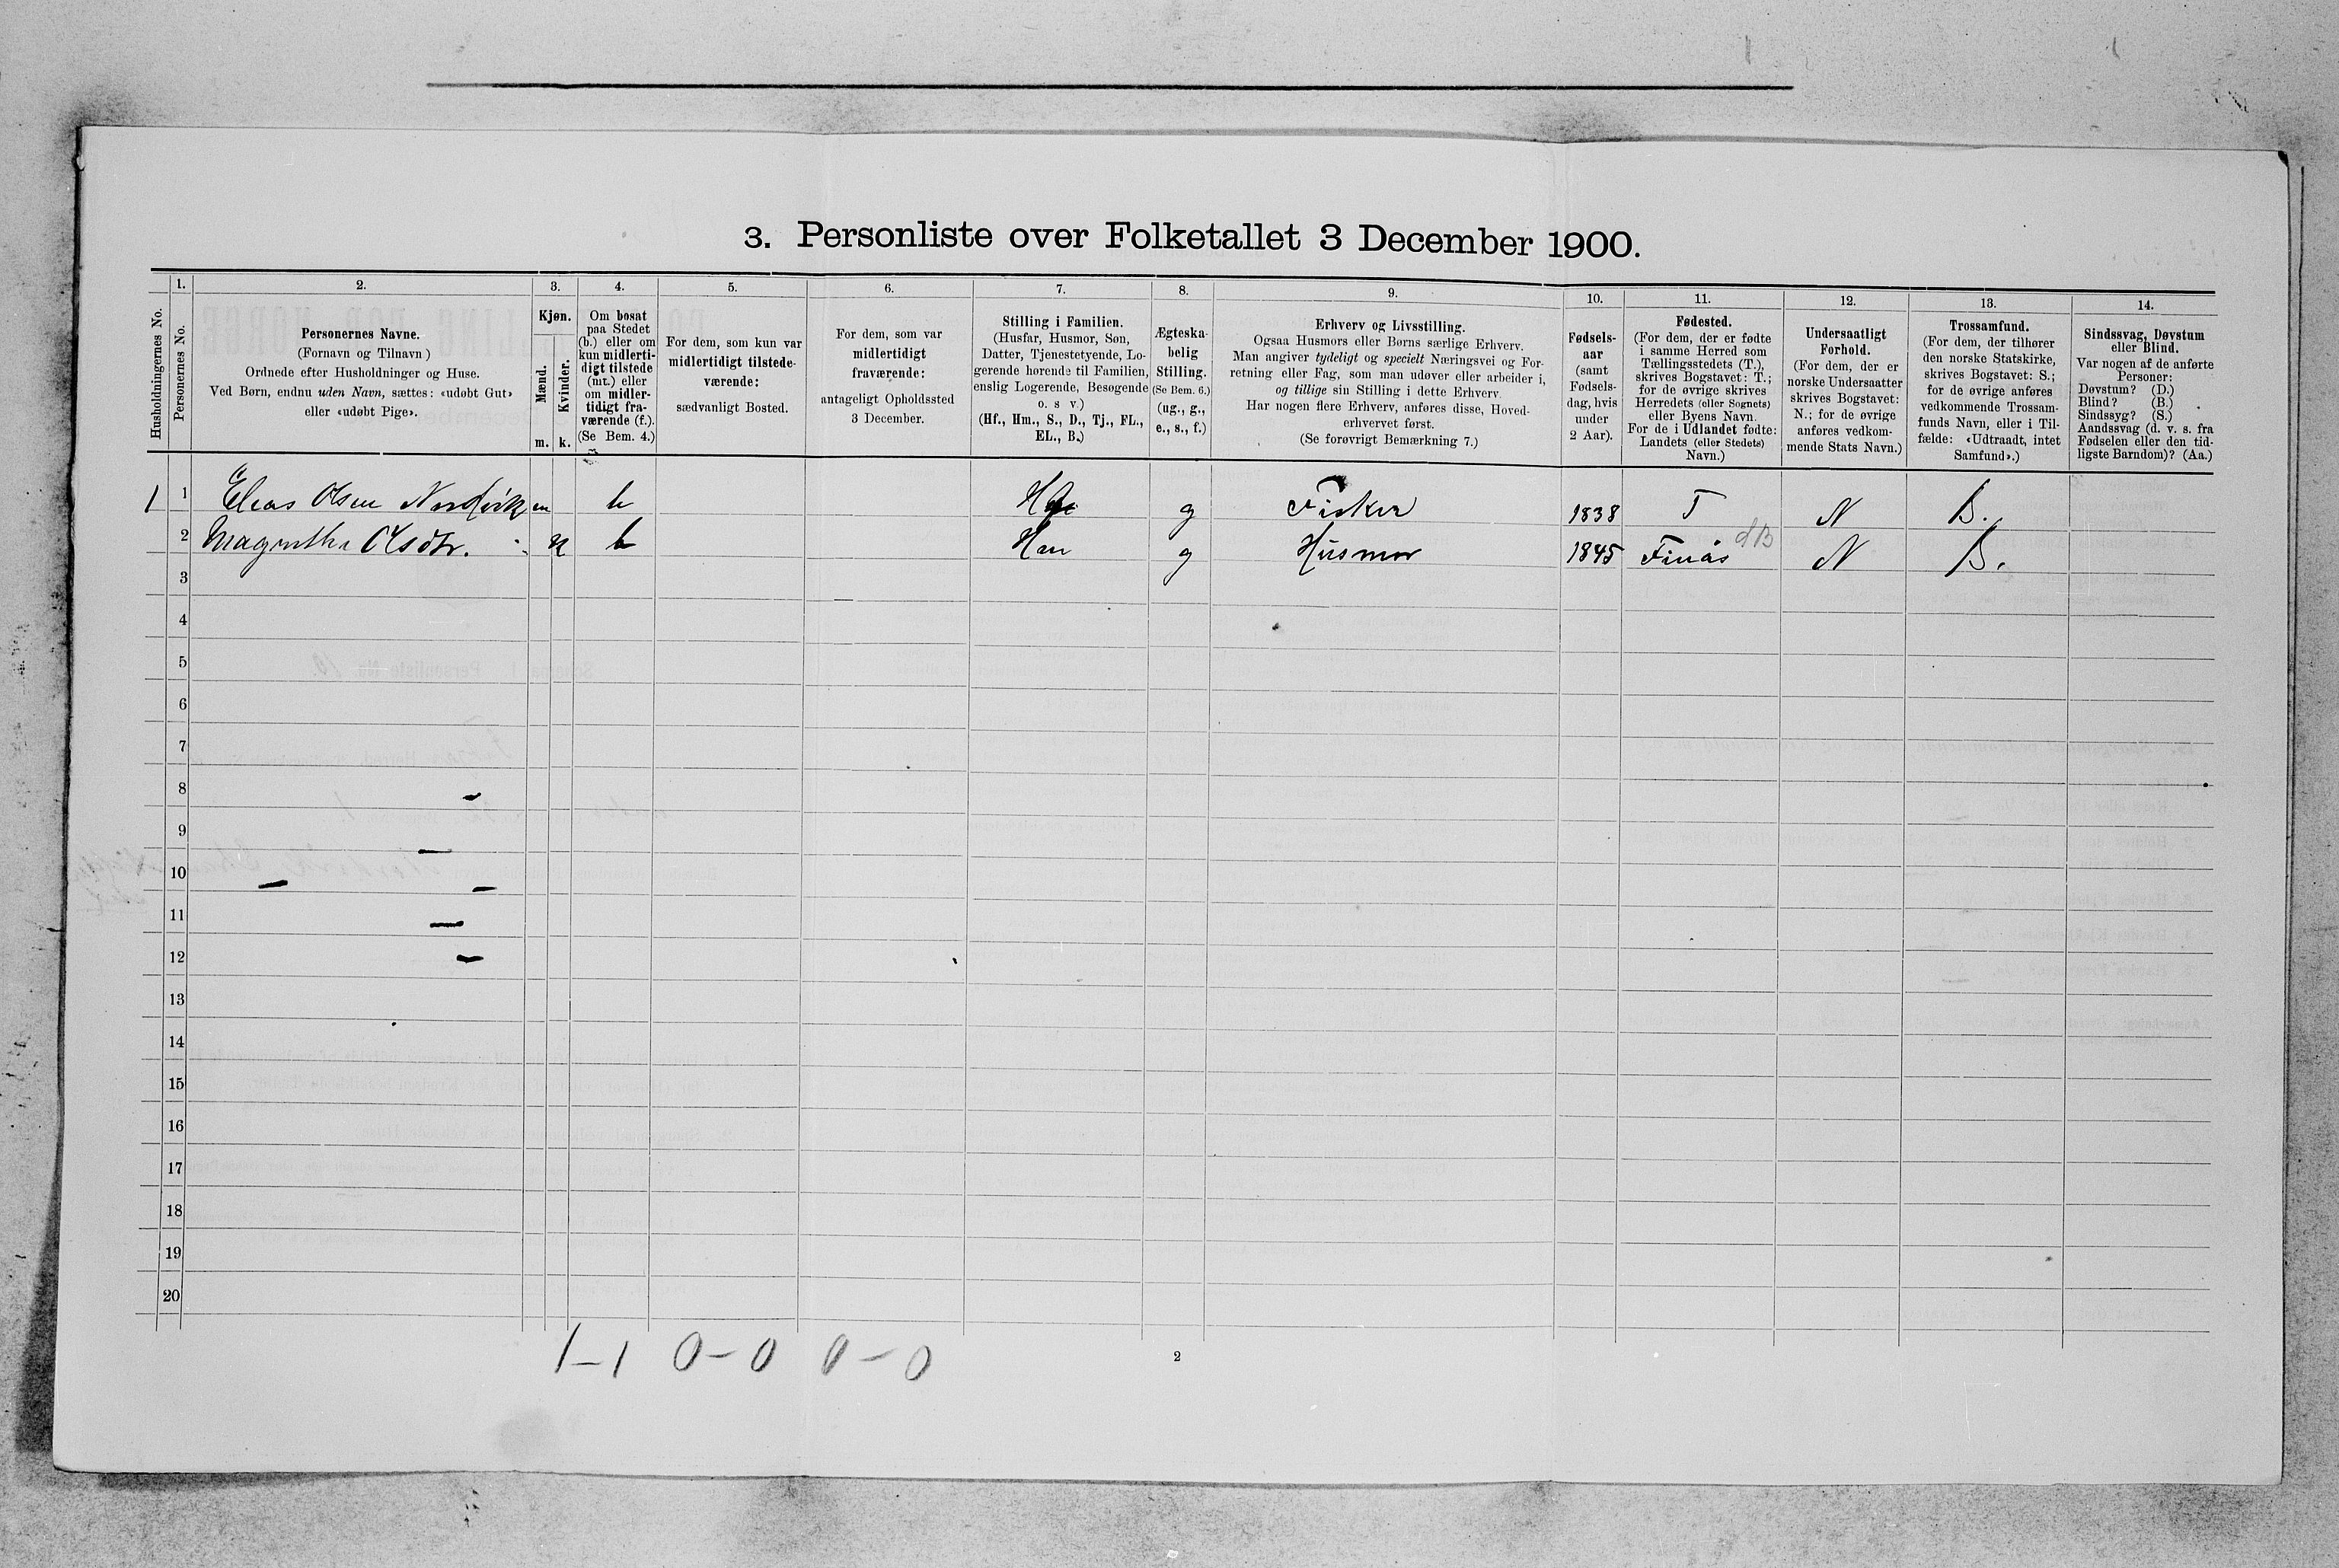 3. Personliste over Folketallet 3 December 1900.
Husholdningernes No.
1.
Personernes No.
2.
Personernes Navne.
(Fornavn og Tilnavn)
Ordnede efter Husholdninger og Huse.
Ved Børn, endnu uden Navn, sættes: «udøbt Gut»
eller «udøbt Pige».
3.
Kjøn.
Mænd.
Kvinder.
m.
k.
4.
Om bosat
paa Stedet
(b.) eller om
kun midlerti-
digt tilstede
(mt.) eller
om midler-
tidigt fra-
værende (f.).
(Se Bem. 4.)
5.
For dem, som kun var
midlertidigt tilstede-
værende:
sædvanligt Bosted.
6.
For dem, som var
midlertidigt
fraværende:
antageligt Opholdssted
3 December.
7.
Stilling i Familien.
(Husfar, Husmor, Søn,
Datter, Tjenestetyende, Lo-
gerende hørende til Familien,
enslig Logerende, Besøgende
o. s v.)
(Hf., Hm., S., D., Tj., FL.,
EL., B.)
8.
Ægteska-
belig
Stilling.
(Se Bem. 6.)
(ug., g.,
e., s., f.)
9.
Erhverv og Livsstilling.
Ogsaa Husmors eller Børns særlige Erhverv.
Man angiver tydeligt og specielt Næringsvei og For-
retning eller Fag, som man udøver eller arbeider i,
og tillige sin Stilling i dette Erhverv.
Har nogen flere Erhverv, anføres disse, Hoved-
erhvervet først.
(Se forøvrigt Bemærkning 7.)
10.
Fødsels-
aar
(samt
Fødsels-
dag, hvis
under
2 Aar).
11.
Fødested.
(For dem, der er fødte
i samme Herred som
Tællingsstedets (T.),
skrives Bogstavet: T.;
for de øvrige skrives
Herredets (eller Sognets)
eller Byens Navn.
For de i Udlandet fødte:
Landets (eller Stedets)
Navn.)
12.
Undersaatligt
Forhold.
(For dem, der er
norske Undersaatter
skrives Bogstavet:
N.; for de øvrige
anføres vedkom-
mende Stats Navn.)
13.
Trossamfund.
(For dem, der tilhører
den norske Statskirke,
skrives Bogstavet: S.;
for de øvrige anføres
vedkommende Trossam-
funds Navn, eller i Til-
fælde: «Udtraadt, intet
Samfund».)
14.
Sindssvag, Døvstum
eller Blind.
Var nogen af de anførte
Personer:
Døvstum? (D.)
Blind? (B.)
Sindssyg? (S.)
Aandssvag (d. v. s. fra
Fødselen eller den tid-
ligste Barndom)? (Aa.)
1 1 Elias Olsen m b g Fisker 1838 T N B.
2 Olsdtr. k b Hm g Husmor 1845 Finås N B.
3
4
5
6
7
8
9
10
11
12
13
14
15
16
17
18
19
20
1-1 0-0 0-0
2